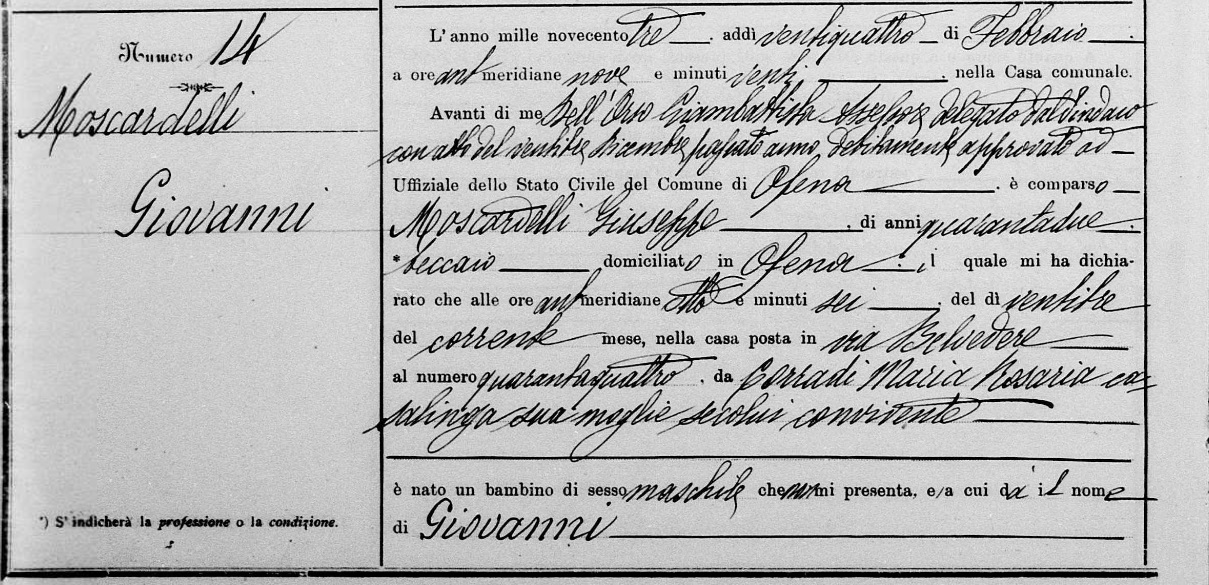 Numero 14
Moscardelli
Giovanni
*) S'indicherà la professione o la condizione.
L'anno mille novecento tre, addì ventiquattro di Febbraio
a ore ant meridiane nove e minuti venti, nella Casa comunale.
Avanti di me Dell'Orso Giambattista Assessore delegato dal Sindaco
con atto del ventitre Dicembre passato anno, debitamente approvato ad
Uffiziale dello Stato Civile del Comune di Ofena, è comparso
Moscardelli Giuseppe, di anni quarantadue,
* beccaio domiciliato in Ofena, il quale mi ha dichia-
rato che alle ore ant meridiane otto e minuti sei, del dì ventitre
del corrente mese, nella casa posta in via Belvedere
al numero quarantaquattro, da Corradi Maria Rosaria ca-
salinga sua moglie secolui convivente
è nato un bambino di sesso maschile che mi presenta, e a cui dà il nome
di Giovanni